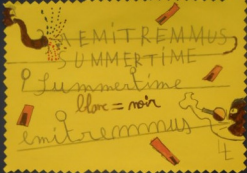 EMITREMMUS
SUMMERTIME
Summertime
blanc = noir
emitremmus